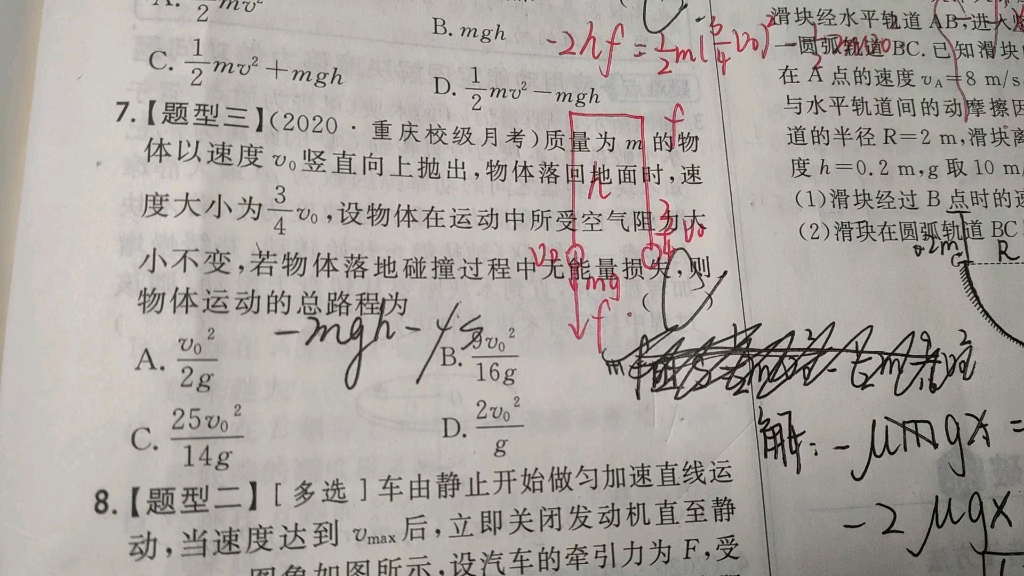 A. \frac{1}{2}mv²
B. mgh
C. \frac{1}{2}mv²+mgh
D. \frac{1}{2}mv²-mgh
7.【题型三】(2020·重庆校级月考)质量为 m 的物
体以速度 v₀ 竖直向上抛出,物体落回地面时,速
度大小为\frac{3}{4}v₀,设物体在运动中所受空气阻力大
小不变,若物体落地碰撞过程中无能量损失,则
物体运动的总路程为 ( )
A. \frac{v₀²}{2g}
C. \frac{25v₀²}{14g}
D. \frac{2v₀²}{g}
8.【题型二】[多选]车由静止开始做匀加速直线运
动,当速度达到 vmax 后,立即关闭发动机直至静
图象如图所示,设汽车的牵引力为 F,受
-2hf=\frac{1}{2}m(\frac{3}{4}v₀)²
f
h
\frac{3}{4}v₀
v₀
mg
f
-mgh-
滑块经水平轨道 AB,进入
一圆弧轨道 BC.已知滑块
在 A 点的速度 vA=8 m/s
与水平轨道间的动摩擦因
道的半径 R=2 m,滑块离
度 h=0.2 m,g 取 10 m/
(1)滑块经过 B 点时的速
(2)滑块在圆弧轨道 BC
0.2m
R
解:-μmgx=
-2μgx